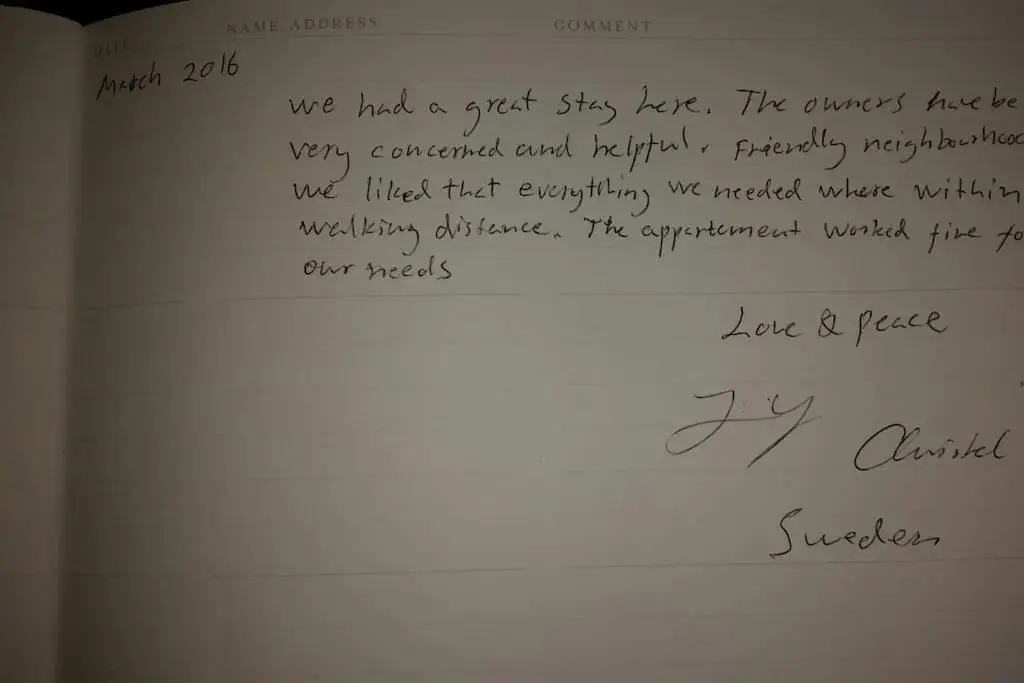 DATE
NAME ADDRESS
COMMENT
March 2016
we had a great stay here. The owners have be
very concerned and helpful. Friendly neighbourhood
we liked that everything we needed where within
walking distance. The appartement worked fine fo
our needs
Love & peace
Christel
Sweden